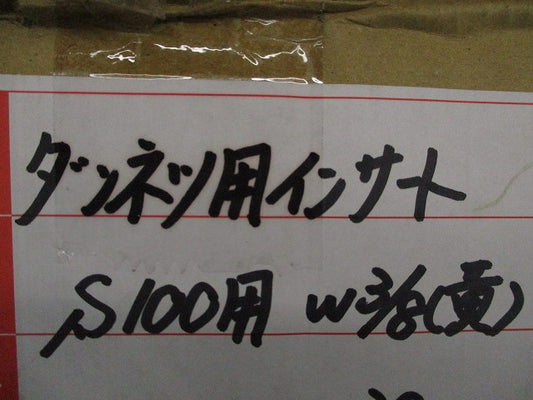 ダンネツ用インサート
S100用 W3/8(黄)